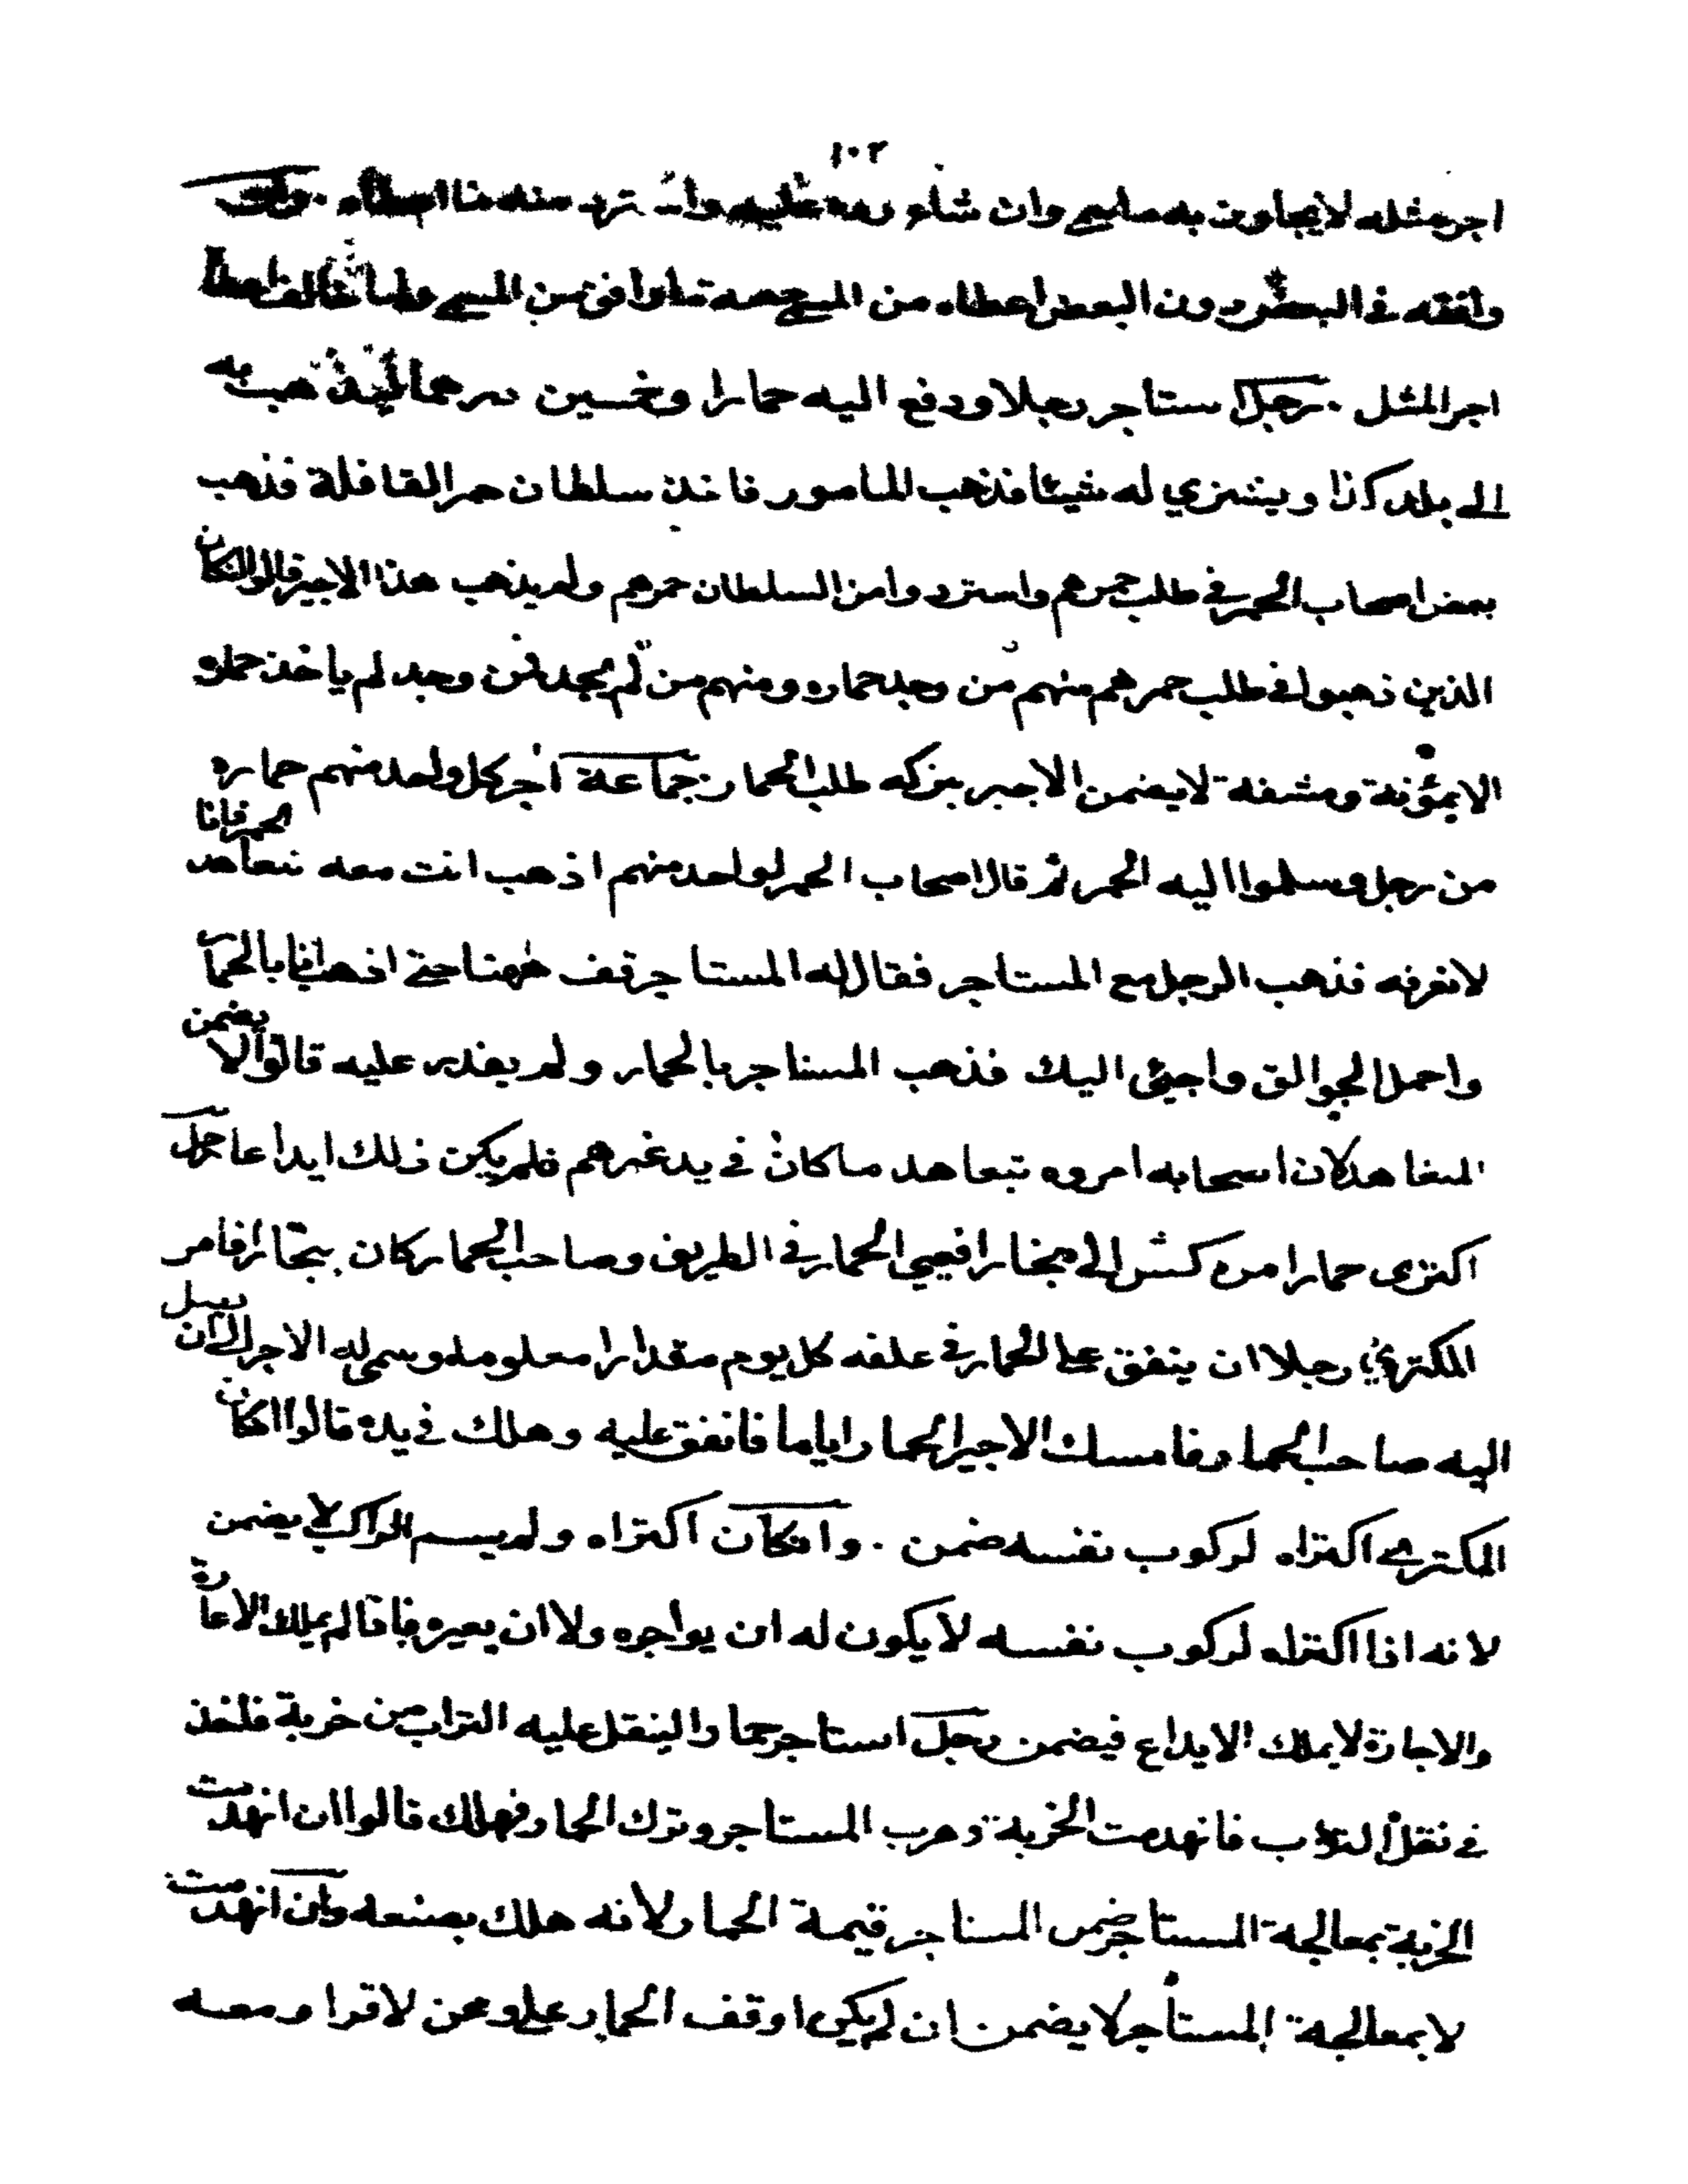 ١٠٢
اجر مثله لا يجاوز به ما سمي وان شاء رده عليه واسترد منه ما اعطاه . وان
وافقه في البعض دون البعض اعطاه من المسمي حصة ما وافق من المسمي وما خالف اعطا
اجر المثل . رجل استاجر رجلا ودفع اليه حمارا وخمسين درهما ليذهب به
الي بلد كذا ويشتري له شيئا فذهب المامور فاخذ سلطان حمر القافلة فذهب
بعض اصحاب الحمر في طلب حمرهم واسترد وا من السلطان حمرهم ولم يذهب هذا الاجير قالوا انكان
الذين ذهبوا في طلب حمرهم منهم من وجد حماره ومنهم من لم يجد فمن وجد لم ياخذ حماره
الا بمؤنة ومشقة لا يضمن الاجير بتركه طلب الحمار جماعة اجر كل واحد منهم حماره
من رجل وسلموا اليه الحمر ثم قال اصحاب الحمر لواحد منهم اذهب انت معه تتعاهد الحمر فانا
لا نعرفه فذهب الرجل مع المستاجر فقال له المستاجر قف ههنا حتي اذهب انا بالحمار
واحمل الجوالق واجيئ اليك فذهب المستاجر بالحمار ولم يقدر عليه قالوا لا يضمن
المتعاهد لان اصحابه امروه بتعاهد ما كان في يد غيرهم فلم يكن ذلك ايداعا رجل
اكترى حمارا من كش الى بخارا فعيي الحمار في الطريق وصاحب الحمار كان ببخارا فامر
المكتري رجلا ان ينفق على الحمار في علفه كل يوم مقدارا معلوما وسمى له الاجر الي ان يصل
اليه صاحب الحمار فامسك الاجير الحمار اياما فانفق عليه وهلك في يده قالوا انكان
المكتري اكتراه لركوب نفسه ضمن . وانكان اكتراه ولم يسم الراكب لا يضمن
لانه اذا اكتراه لركوب نفسه لا يكون له ان يواجره ولا ان يعيره فاذا لم يملك الاعارة
والاجارة لا يملك الايداع فيضمن رجل استاجر حمارا لينقل عليه التراب من خربة فاخذ
في نقل التراب فانهدمت الخربة وهرب المستاجر وترك الحمار فهلك قالوا ان انهدمت
الخربة بمعالجة المستاجر ضمن المستاجر قيمة الحمار لانه هلك بصنعه وان انهدمت
لا بمعالجة المستأجر لا يضمن ان لم يكن اوقف الحمار على وهن لا قرار ومعه